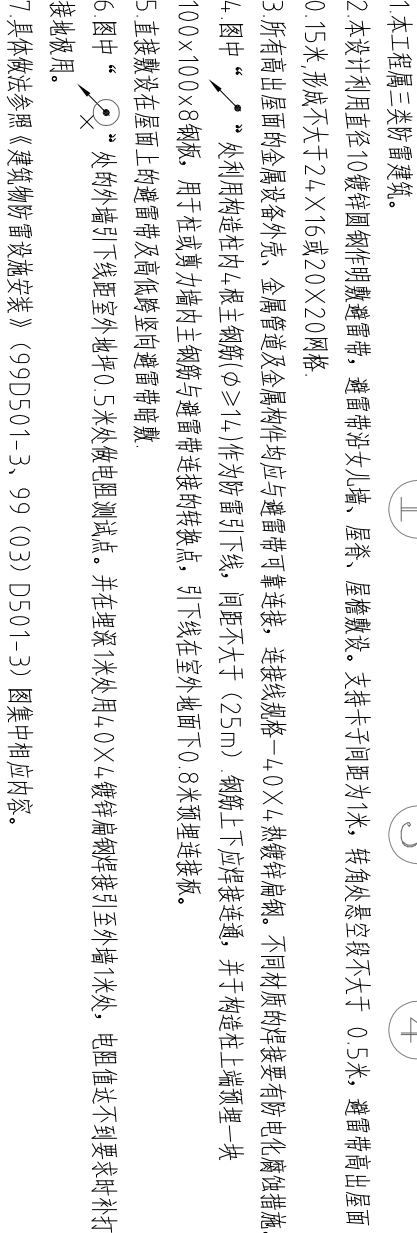 1.本工程属三类防雷建筑。
2.本设计利用直径10镀锌圆钢作明敷避雷带，避雷带沿女儿墙、屋脊、屋檐敷设。支持卡子间距为1米，转角处悬空段不大于 0.5米，避雷带高出屋面
0.15米,形成不大于24X16或20X20网格.
3.所有高出屋面的金属设备外壳、金属管道及金属构件均应与避雷带可靠连接，连接线规格－40X4热镀锌扁钢。不同材质的焊接要有防电化腐蚀措施.
4.图中“ ”处利用构造柱内4根主钢筋(Φ≥14)作为防雷引下线，间距不大于（25m）.钢筋上下应焊接连通，并于构造柱上端预埋一块
100x100x8钢板，用于柱或剪力墙内主钢筋与避雷带连接的转换点，引下线在室外地面下0.8米预埋连接板。
5.直接敷设在屋面上的避雷带及高低跨竖向避雷带暗敷.
6.图中“ X ”处的外墙引下线距室外地坪0.5米处做电阻测试点。并在埋深1米处用40X4镀锌扁钢焊接引至外墙1米外，电阻值达不到要求时补打
接地极用。
7.具体做法参照《建筑物防雷设施安装》（99D501-3、99（03）D501-3）图集中相应内容。
1
3
4